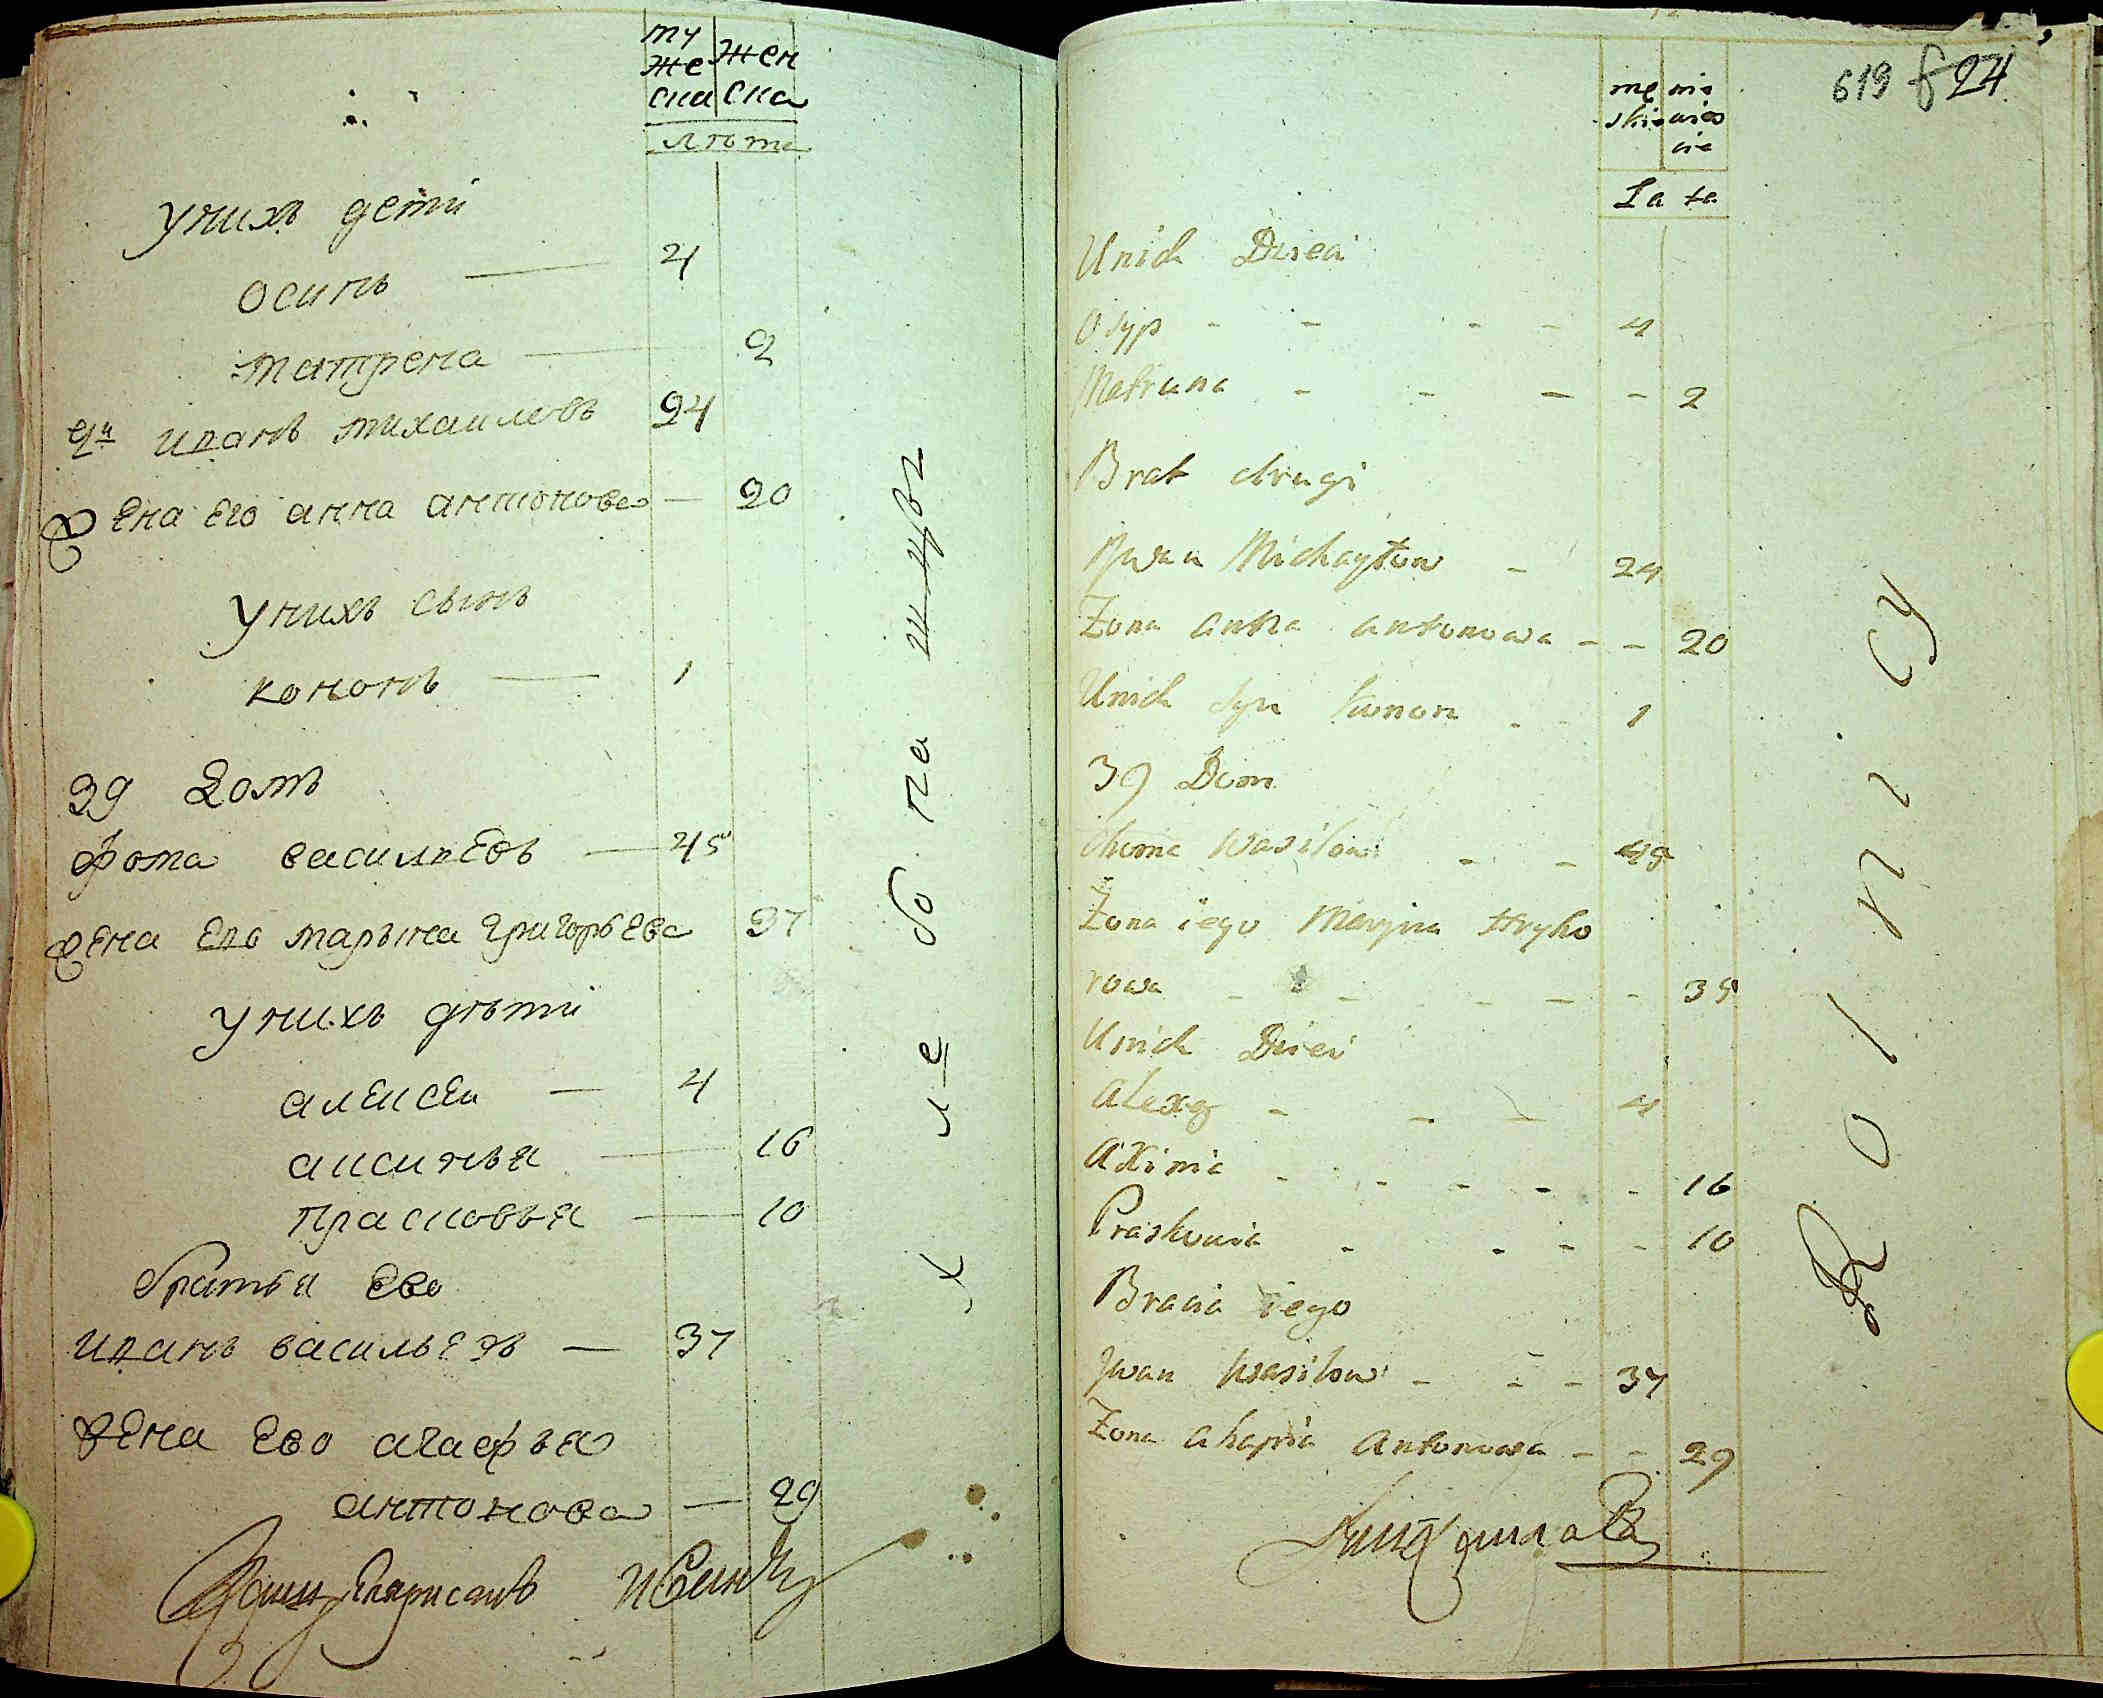 му жен
же ска
ска
лѣта
унихъ дети
осипъ — 4
матрена — 2
иванъ михаиловъ 24
жена его анна антонова — 20
унихъ сынъ
кононъ — 1
39 домъ
фома васильевъ — 45
жена ево марьина григорьева 37
унихъ дѣти
алексеи — 4
аксинья — 16
прасковья — 10
братья ево
иванъ васильевъ — 37
жена ево агафья
антонова — 29
хле бо па шцы
619 24
mę nie
skie wieś
cie
Lata
Unich Dzieci
Osyp - - - - 4
Metruna - - - - 2
Brat drugi
Jwan Michayłow - 24
Żona Anna Antonowa - - 20
Unich syn Konon - - 1
39 Dom
Choma Wasilow - - 45
Żona iego Maryna Hryho
rowa - - - - - - 35
Unich Dzieci
Alexey - - - 4
Axinia - - - - - 16
Praskowia - - - - 10
Bracia iego
Jwan Wasilow - - - 37
Żona Ahapia Antonowa - - 29
Rolnicy